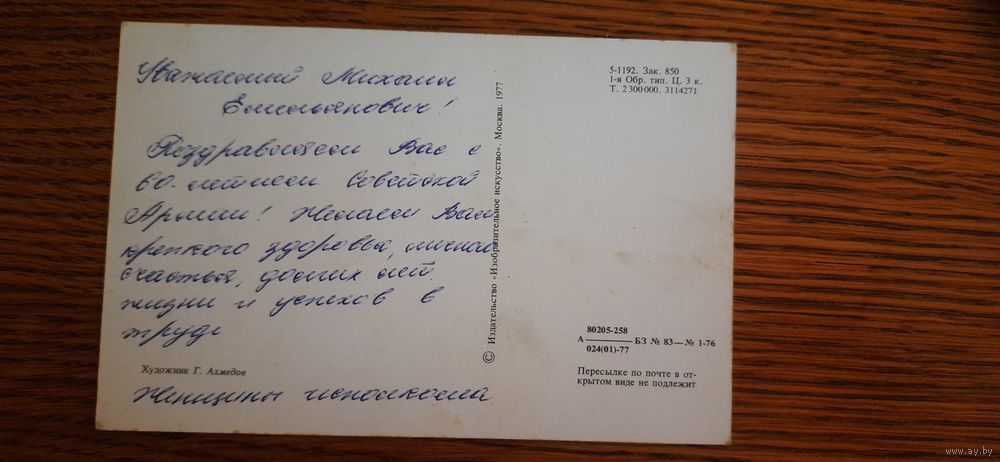 Уважаемый Михаил
Емельянович!
Поздравляем Вас с
60-летием Советской
Армии! Желаем Вам
крепкого здоровья, личного
счастья, долгих лет
жизни и успехов в
труде
Художник Г. Ахмедов
Женщины исполкома
© Издательство «Изобразительное искусство». Москва. 1977
5-1192. Зак. 850
1-я Обр. тип. Ц. 3 к.
Т. 2 300 000. 3114271
80205-258
А ——— БЗ № 83—№ 1-76
024(01)-77
Пересылке по почте в от-
крытом виде не подлежит
www.ay.by